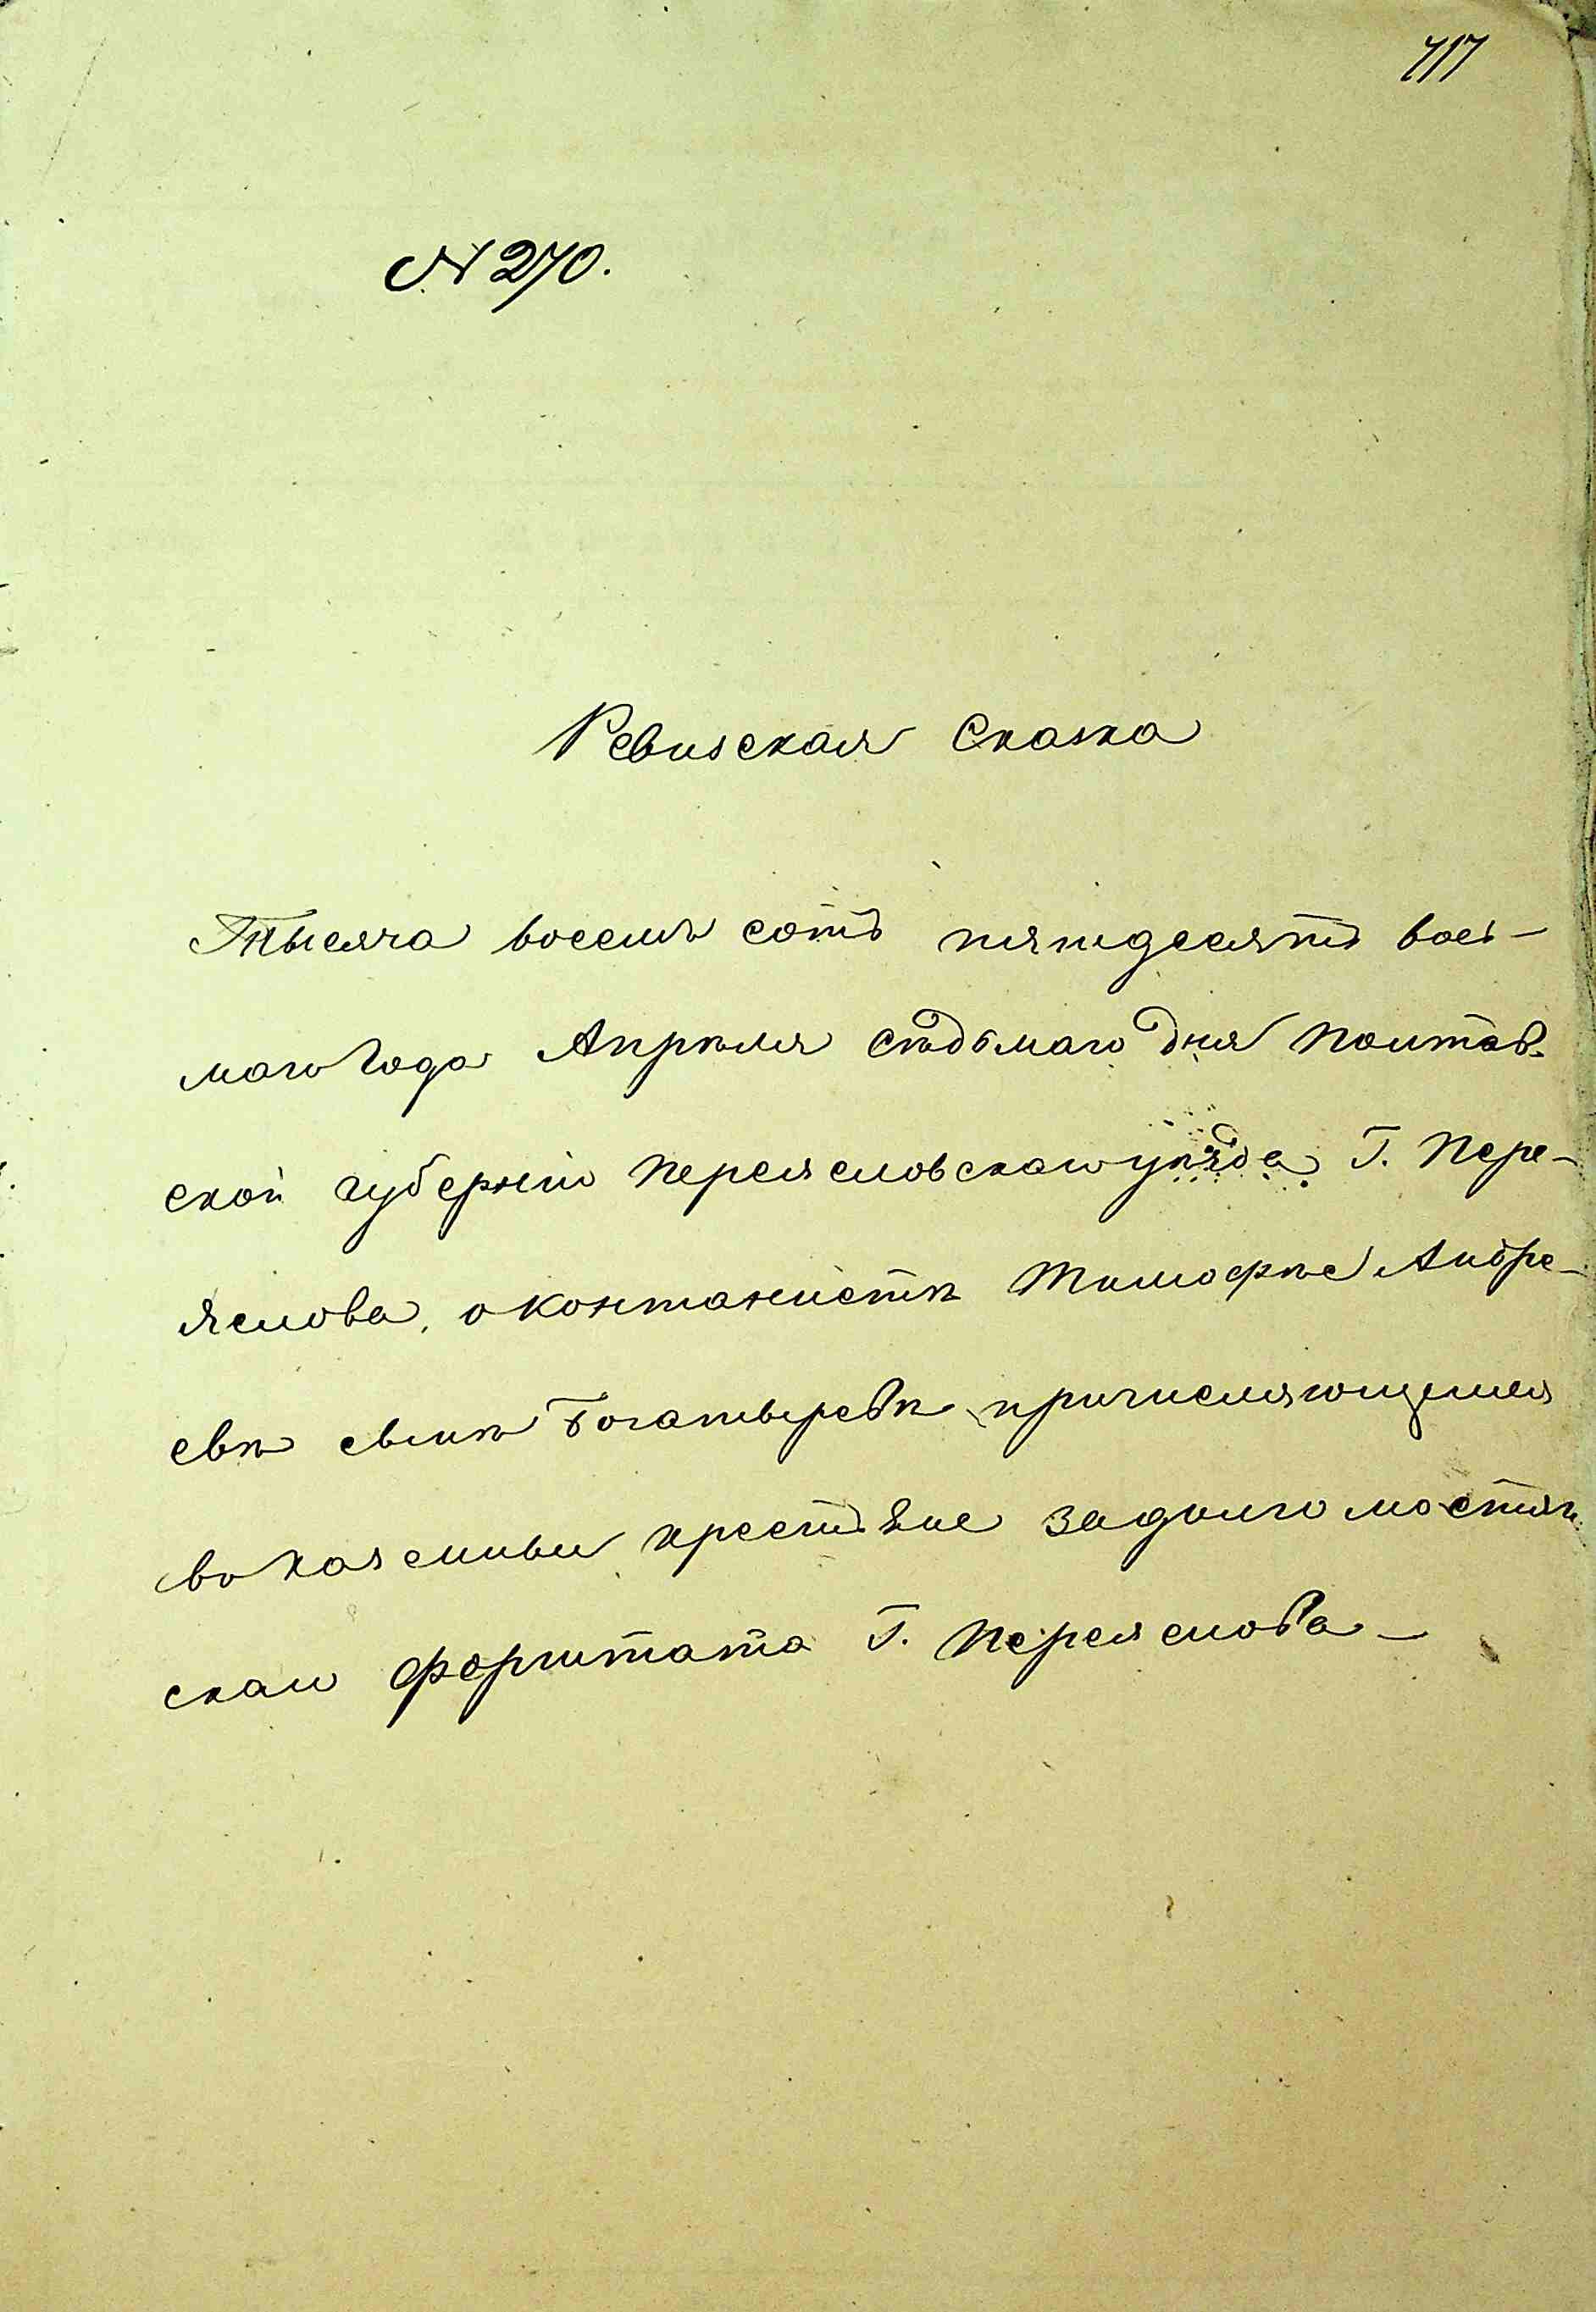 717
N 270.
Ревизская Сказка
Тысяча восемь сотъ пятдесятъ вось-
маго Года Апрѣля сѣдьмаго дня Полтав-
ской губерніи Переясловскаго уѣзда Г. Пере-
яслова, о Контанистѣ Тимофѣе Андре-
евѣ сынѣ Богатыревѣ причисляющемся
во казенныи крестьяне Задолгомостян-
скаго Форштата Г. Переяслова